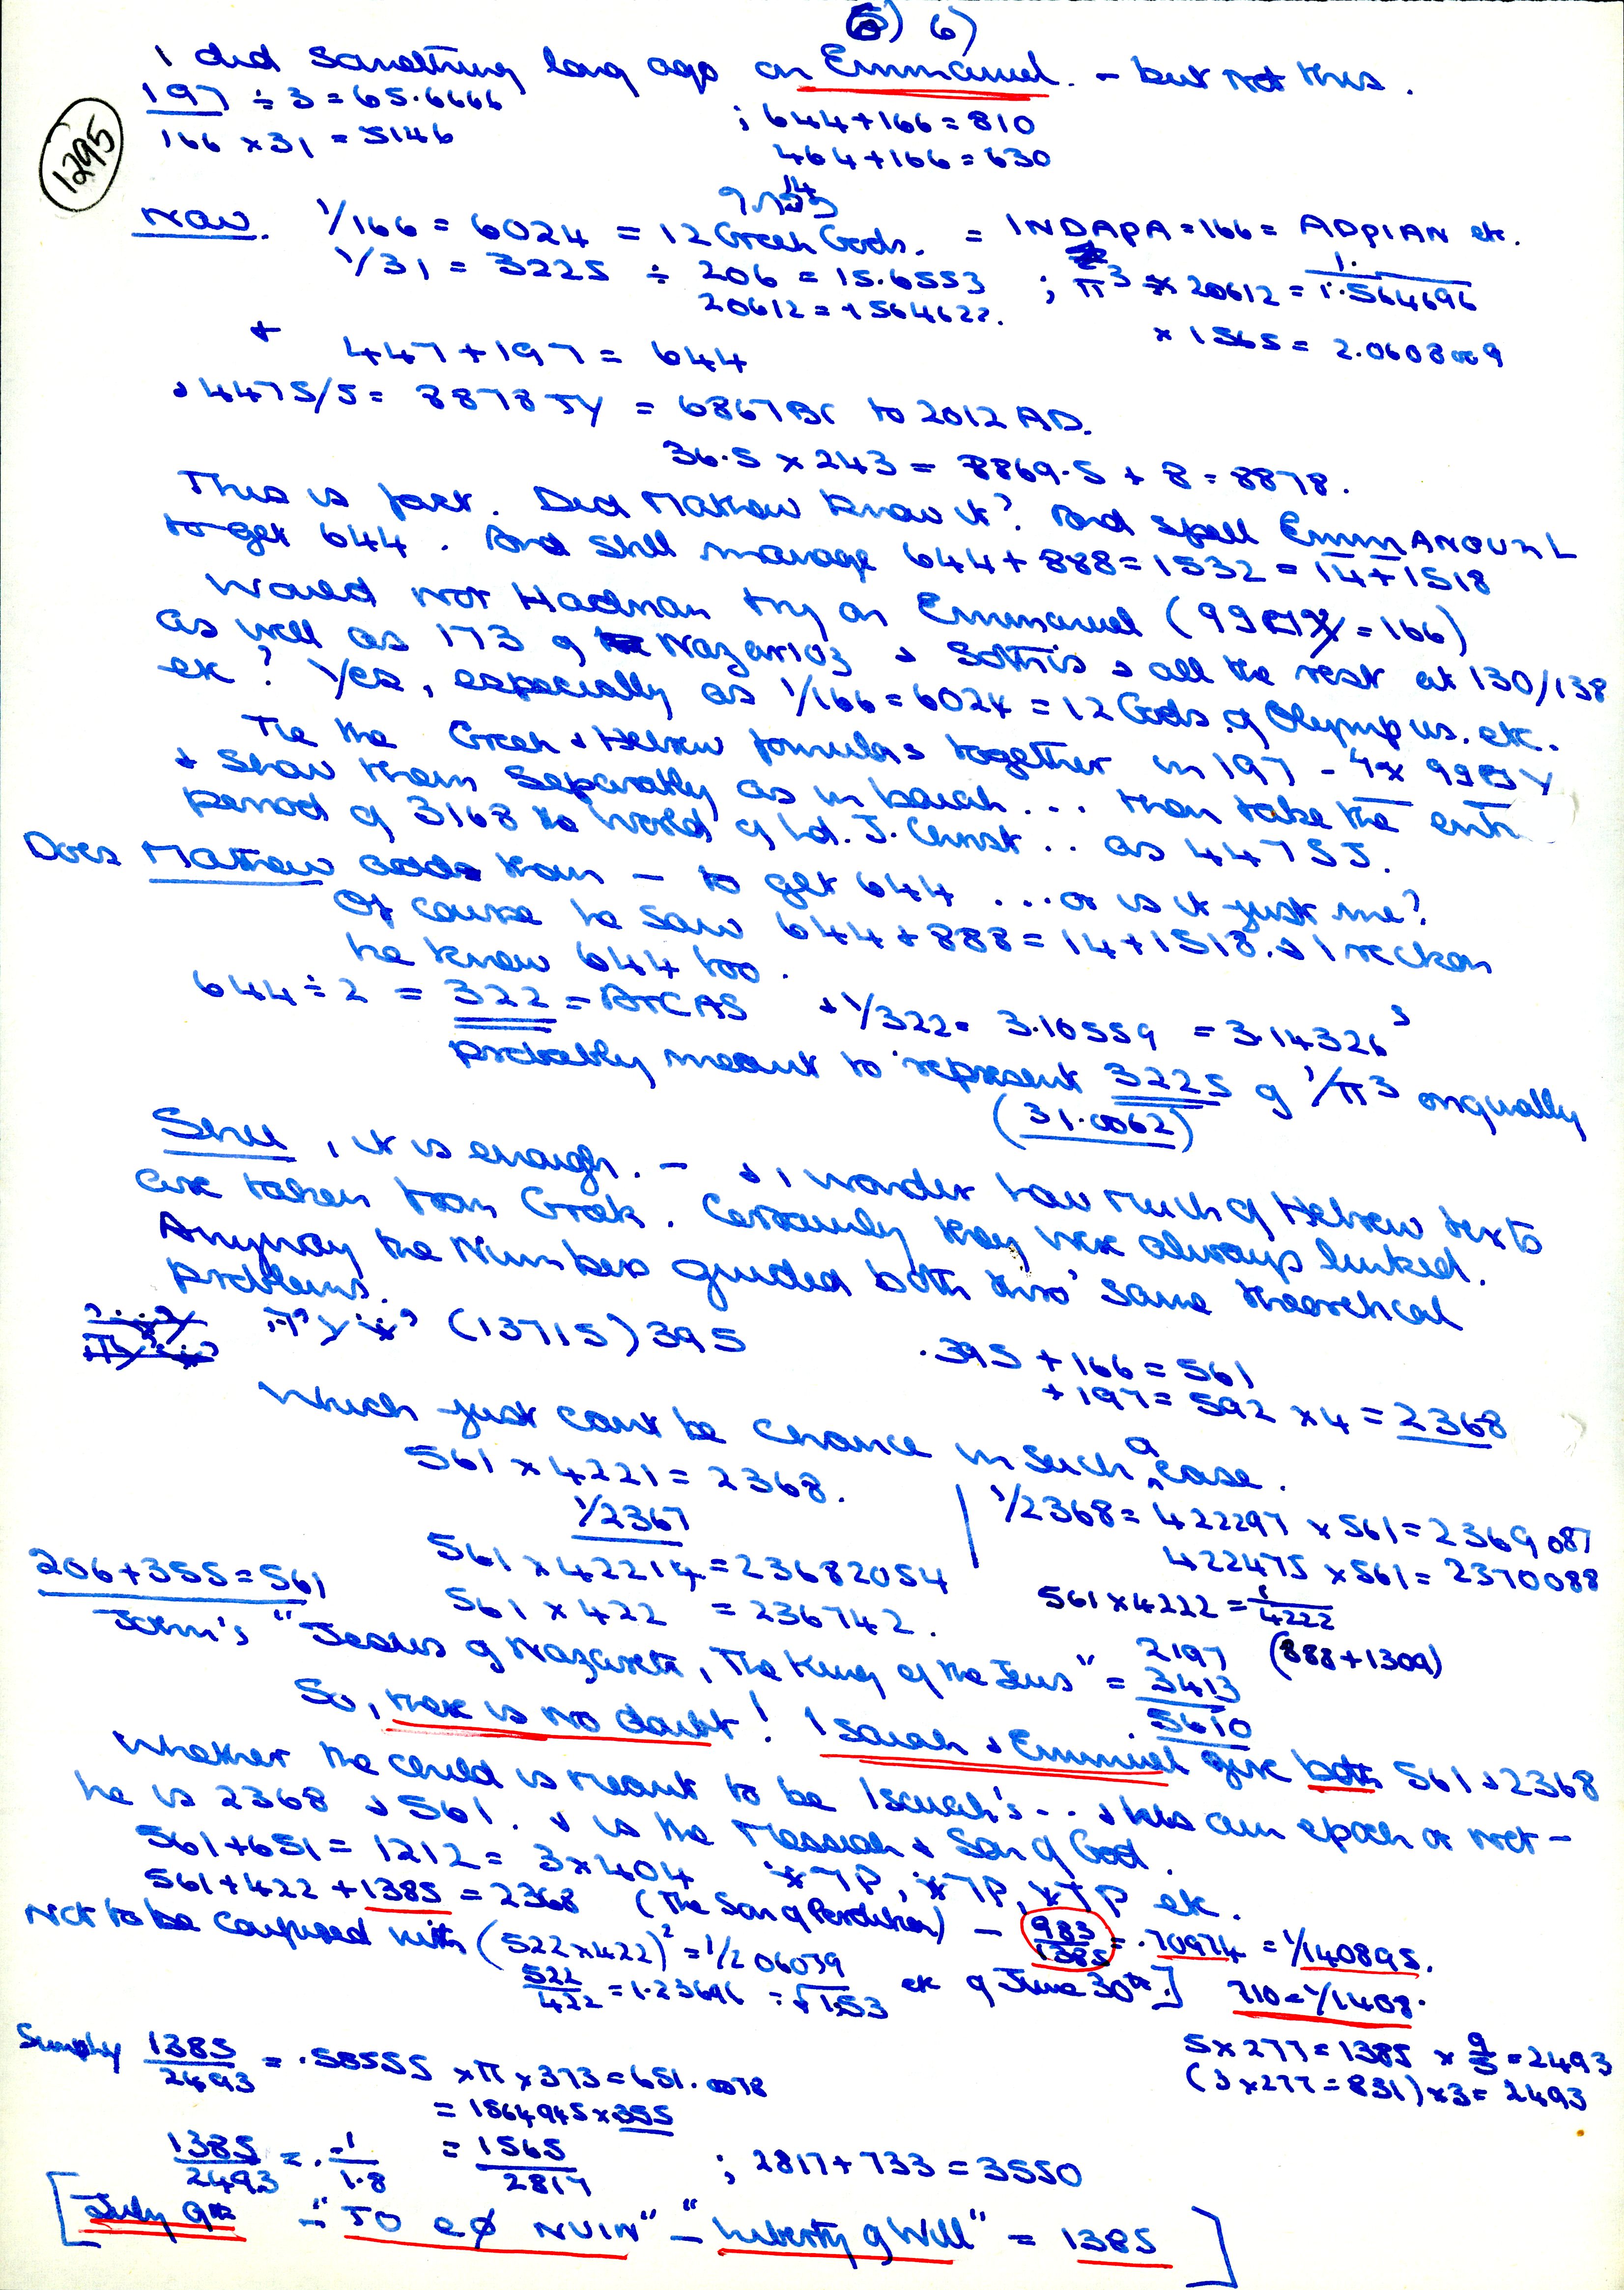 6)
I did something long ago on Emmanuel. - but not this.
197 ÷ 3 = 65.6666
166 × 31 = 5146
; 644 + 166 = 810
464 + 166 = 630
1295
Now. 1/166 = 6024 = 12 Greek Gods. = INDAPA = 166 = ADPIAN etc.
1/31 = 3225 ÷ 206 = 15.6553
20612 = 1564622.
× 1565 = 2.0608009
+ 447 + 197 = 644
+ 4475/5 = 8878 JY = 6867 BC to 2012 AD.
36.5 × 243 = 8869.5 + 8 = 8878.
This is fact. Did Mathew know it? And spell EmmANOUHL
to get 644. And still manage 644 + 888 = 1532 = 14 + 1518
Would not Hadrian try on Emmanuel ( = 166)
as well as 173 of Nazarios & Sothis & all the rest at 130/138
etc? Yes, especially as 1/166 = 6024 = 12 Gods of Olympus. etc.
Tie the Greek & Hebrew formulas together in 197 -
& show them separately as in Isaiah ... then take the entire
period of 3168 the World of Ld. J. Christ .. as 4475 J.
Does Matthew add them - to get 644 ... or is it just me?
Of course he saw 644 + 888 = 14 + 1518. & I reckon
he knew 644 too.
644 ÷ 2 = 322 = & 1/322 = 3.10559 = 3.14326³
probably meant to represent 3225 of 1/π3 originally
(31.0062)
Still, it is enough. - & I wonder how much of Hebrew texts
are taken from Greek. Certainly they were always linked.
Anyway the Numbers guided both thro' same theoretical
problems.
(13715) 395
.395 + 166 = 561
+ 197 = 592 × 4 = 2368
Which just can't be chance in such a case.
561 × 4221 = 2368.
1/2367
1/2368 = 422297 × 561 = 2369087
561 × 42214 = 23682054
422475 × 561 = 2370088
206 + 355 = 561
561 × 422 = 236742.
561 × 4222 = 1/4222
John's "Jesus of Nazareth, The King of the Jews" = 2197 (888 + 1309)
3413
5610
So, there is no doubt! Isaiah & Emmuel give both 561 & 2368
Whether the child is meant to be Isaiah's .. & his own epoch or not -
he is 2368 & 561. & is the Messiah & Son of God.
561 + 651 = 1212 = 3 × 404 etc.
561 + 422 + 1385 = 2368 (The Son of Perdition) - 983/1385 = .70974 = 1/140895.
Not to be confused with (522 × 422)² = 1/206039
522/422 = 1.23696 = √1.53 etc of June 30th.] 710 = 1/1408.
Simply 1385/2493 = .58555 × π × 373 = 651.0078
= 1864945 × 355
5 × 277 = 1385 × 9/5 = 2493
(3 × 277 = 831) × 3 = 2493
1385/2493 = 1/1.8 = 1565/2817 ; 2817 + 733 = 3550
[July 9th - "TO eø NUIN" - "Liberty of Will" = 1385 ]